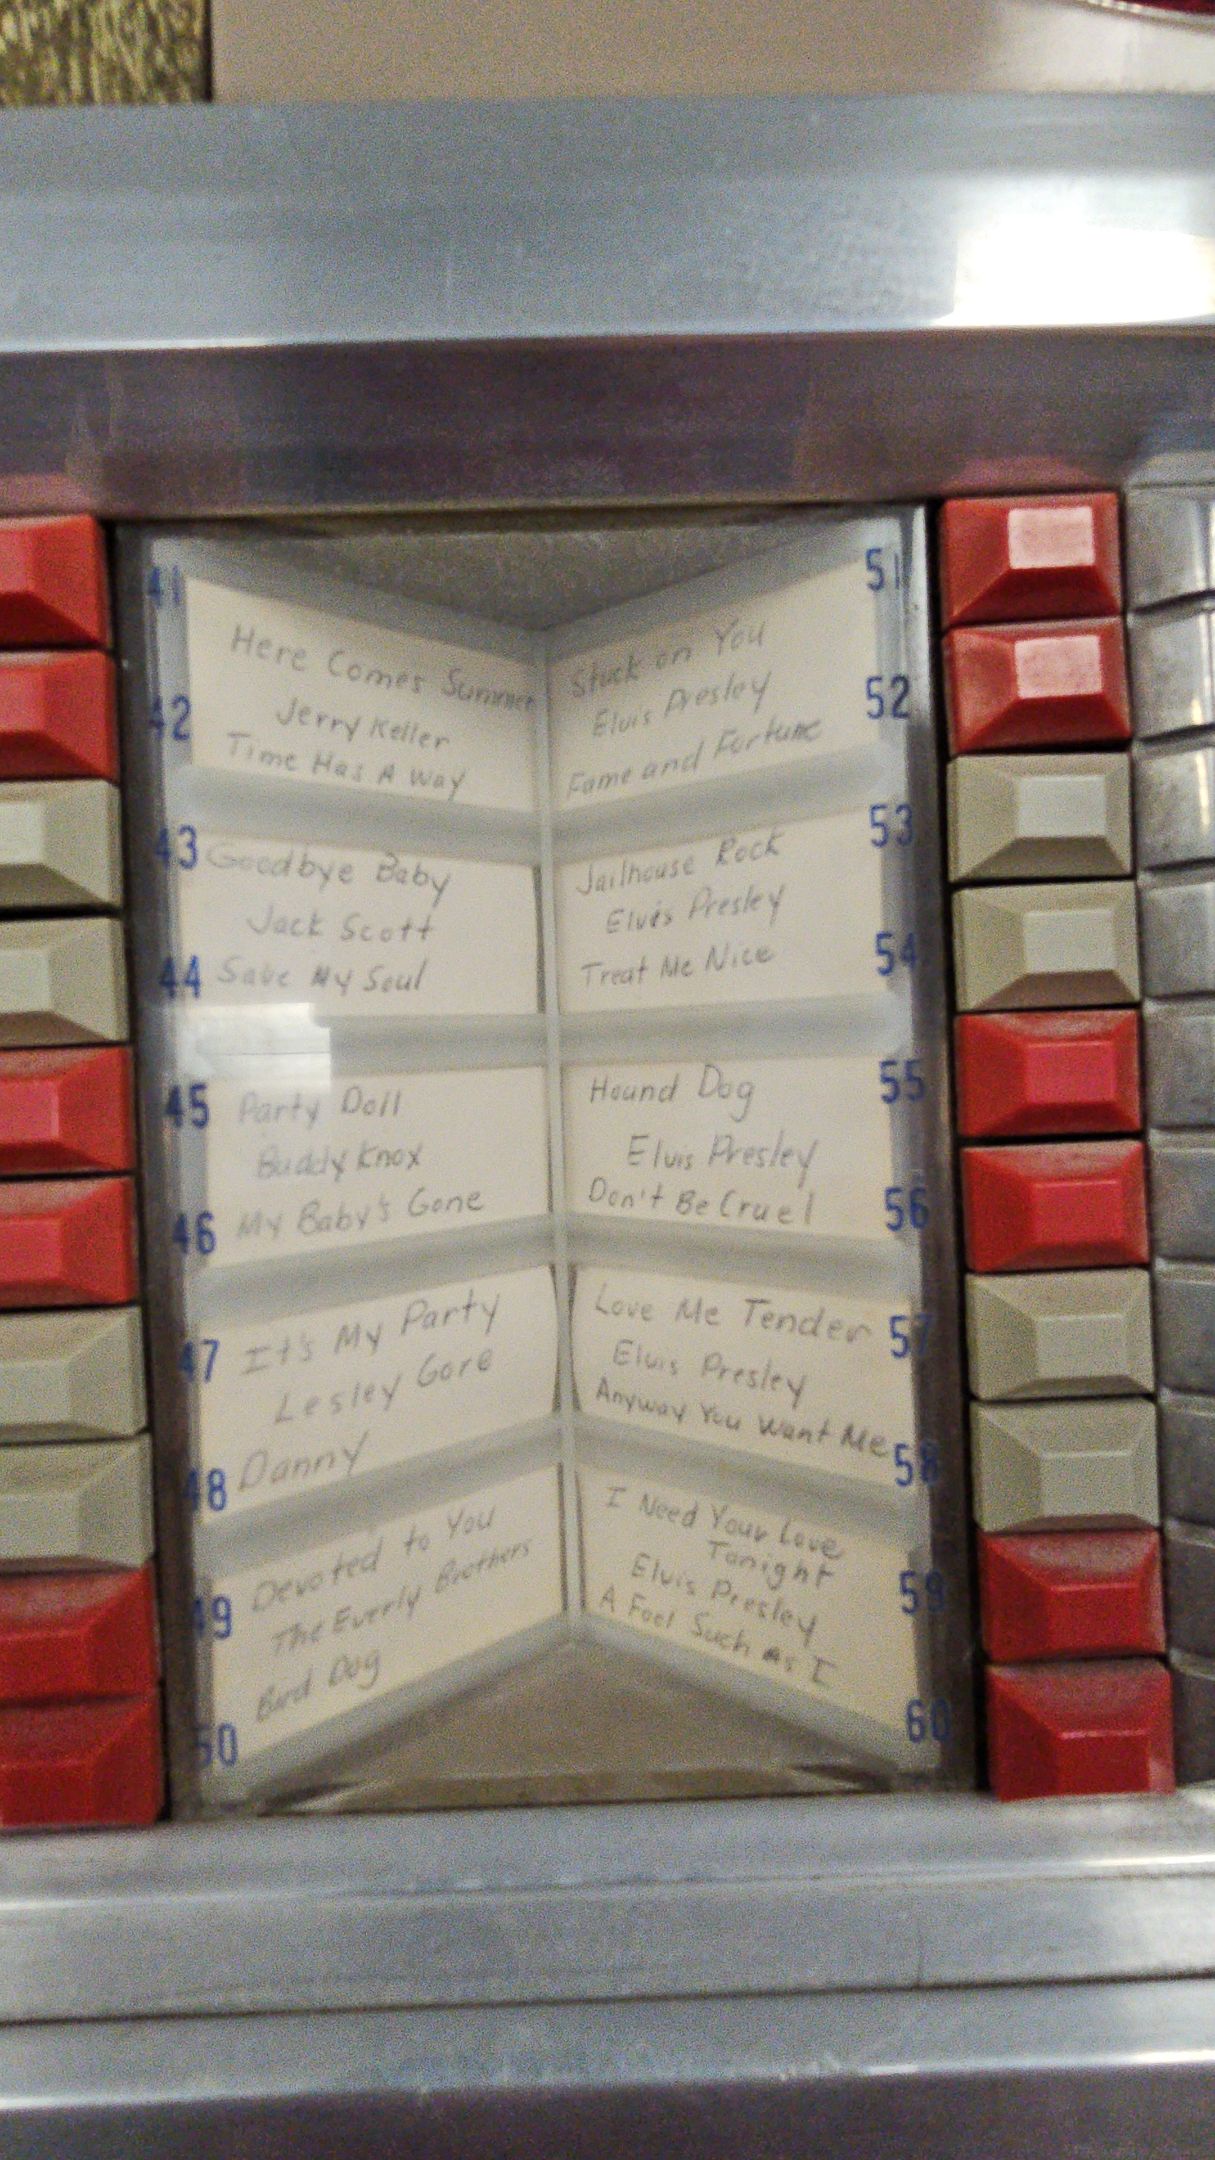 41
Here Comes Summer
42
Jerry Keller
Time Has A Way
43
Goodbye Baby
Jack Scott
44
Save My Soul
45
Party Doll
Buddy Knox
46
My Baby's Gone
47
It's My Party
Lesley Gore
48
Danny
49
Devoted to You
The Everly Brothers
Bird Dog
50
51
Stuck on You
52
Elvis Presley
Fame and Fortune
53
Jailhouse Rock
Elvis Presley
54
Treat Me Nice
55
Hound Dog
Elvis Presley
56
Don't Be Cruel
57
Love Me Tender
Elvis Presley
Anyway You Want Me
58
I Need Your Love
Tonight
59
Elvis Presley
A Fool Such As I
60